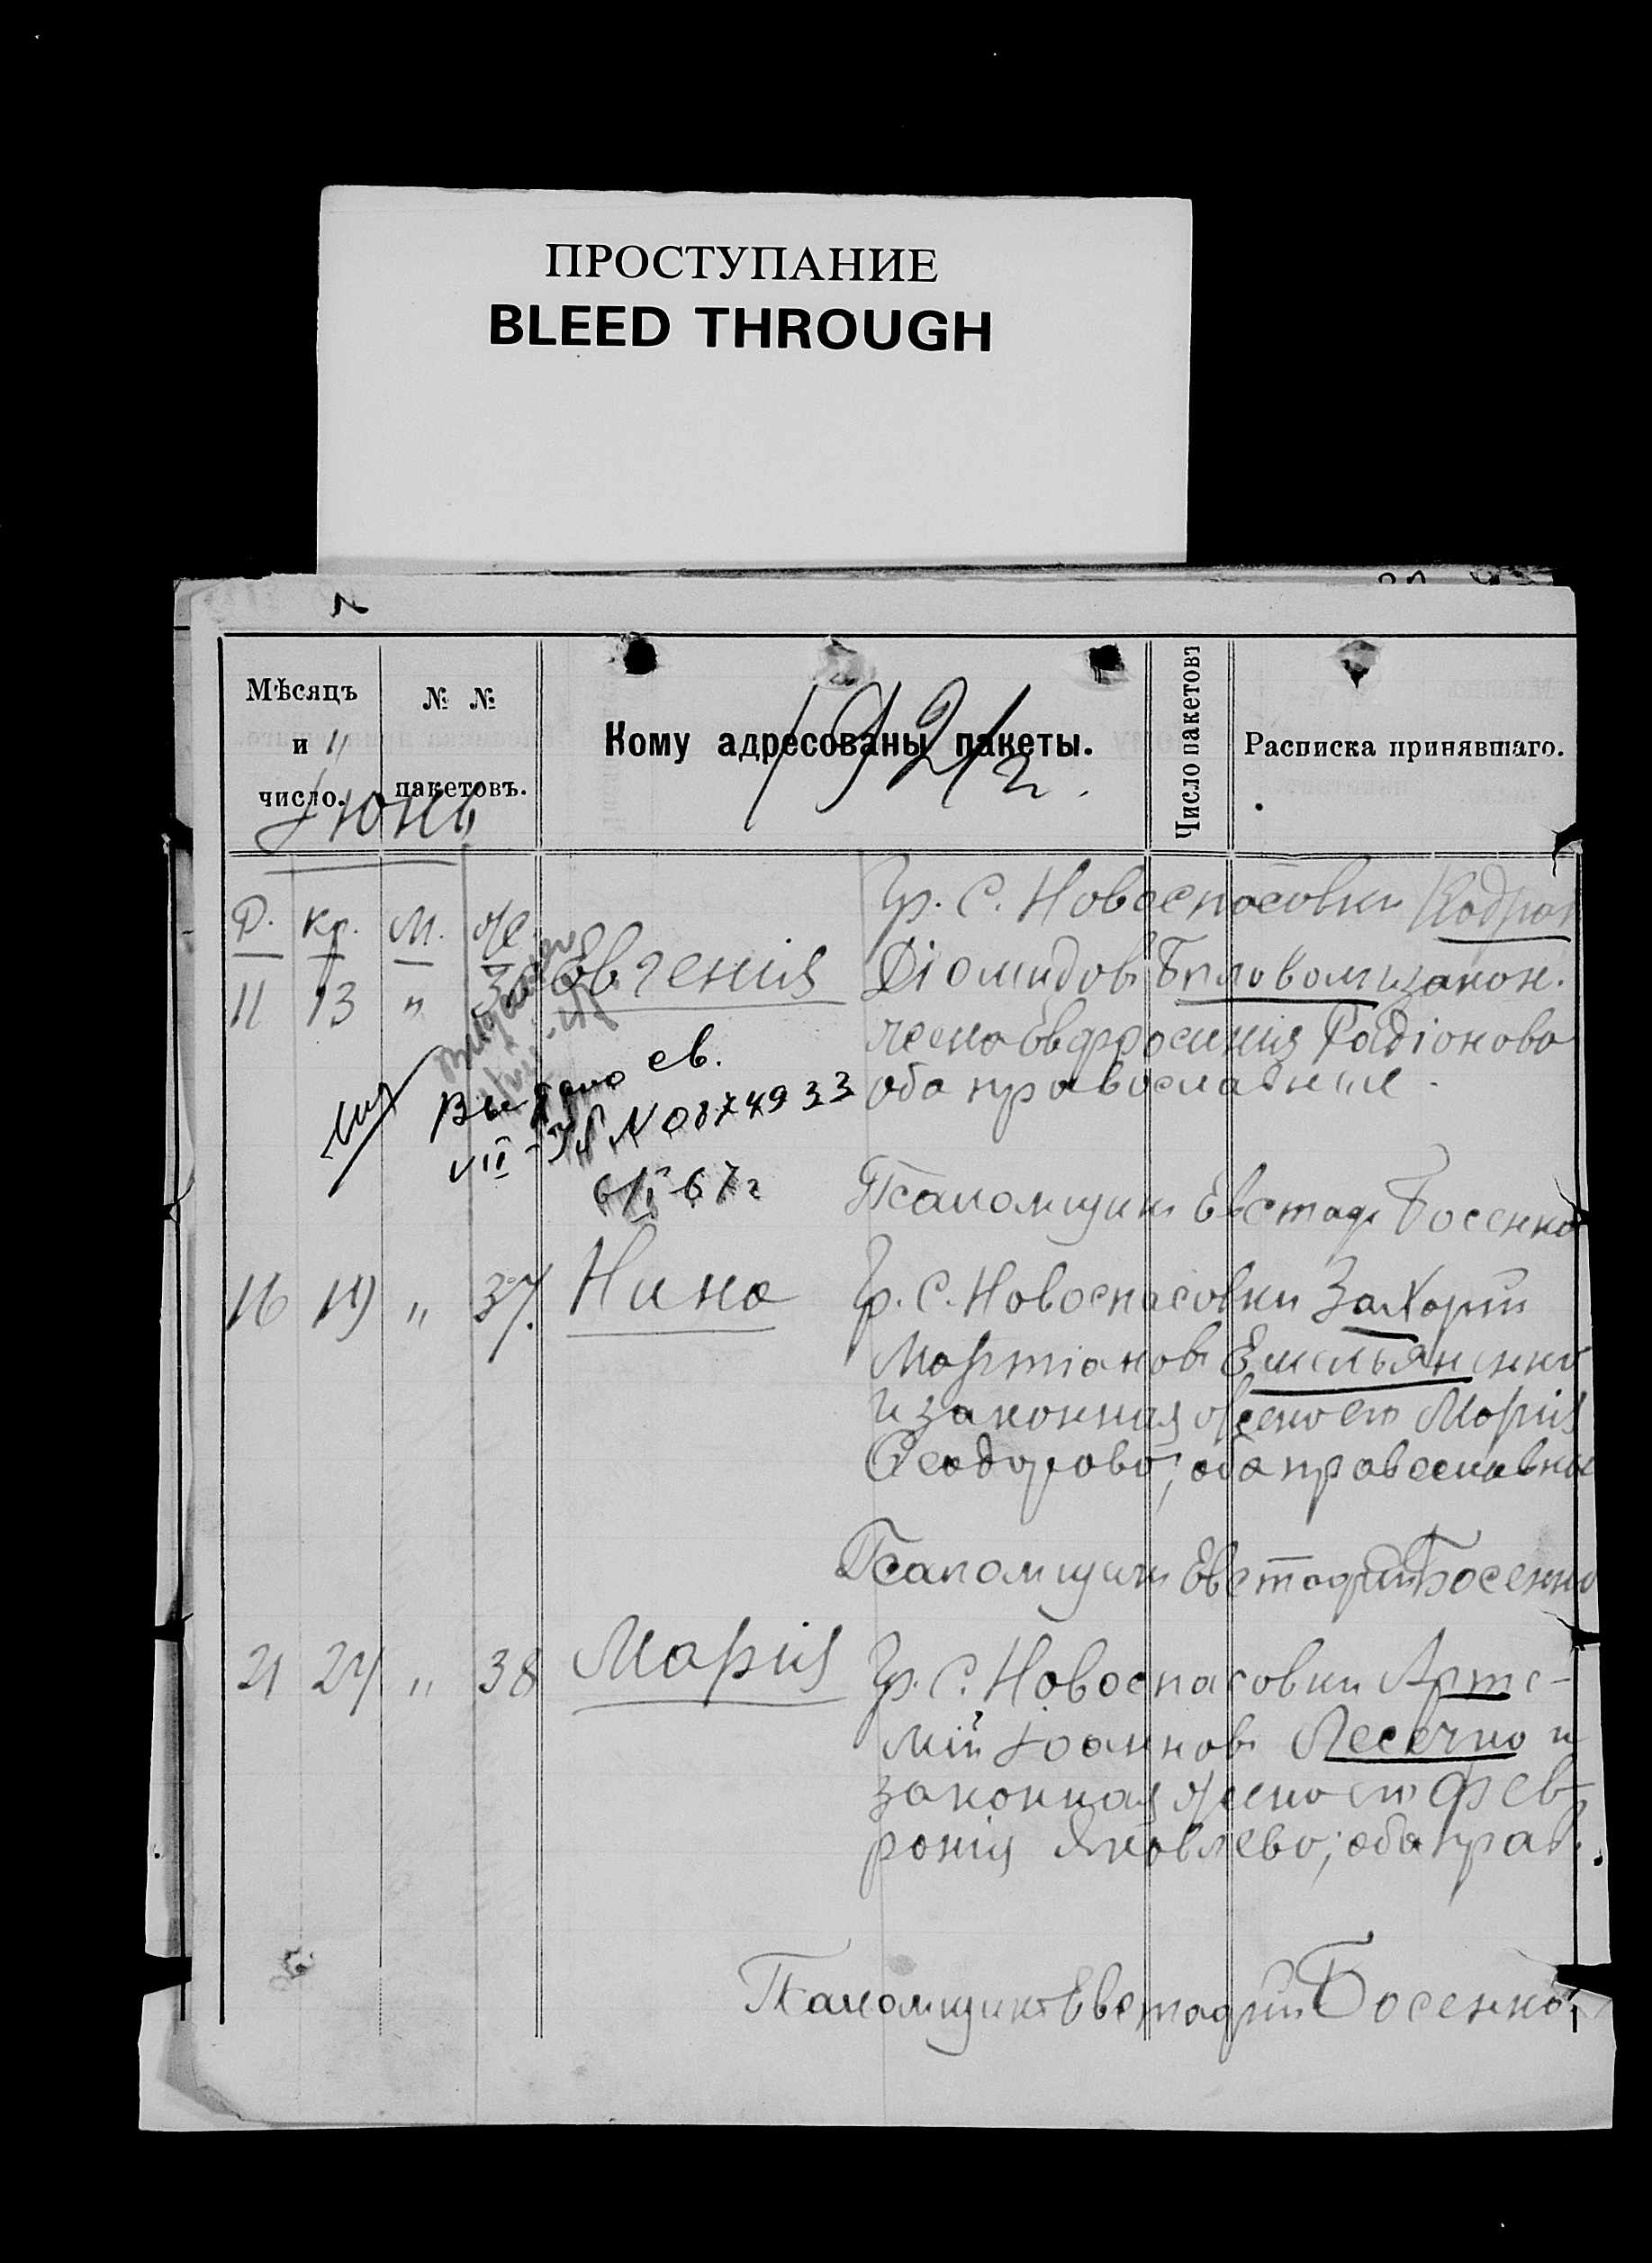 ПРОСТУПАНИЕ
BLEED THROUGH
Мѣсяцъ и число.
№ № пакетовъ.
Кому адресованы пакеты.
Число пакетовъ
Расписка принявшаго.
1921 г.
Іюнь
Р. Кр. М. Ж.
Гр. С. Новоспасовки Кодрат
11 13 " Евгенія Діомидовъ Биловол и закон.
жена Евфросинія Родіонова
оба православные.
Выдано св.
VII-ЯР N 0874933
67г
Псаломщикъ Евстаф Босенко
16 19 " 37. Нина Гр. С. Новоспасовки Захарій
Мартіановъ Емельяненко
и законная жена его Марія
Феодорова; оба православные
Псаломщикъ Евстафій Босенко
21 24 " 38 Марія Гр. С. Новоспасовки Арте-
мій Іоанновъ Лесечко и
законная жена его Фев-
ронія Яковлева; оба прав.
Псаломщикъ Евстафій Босенко